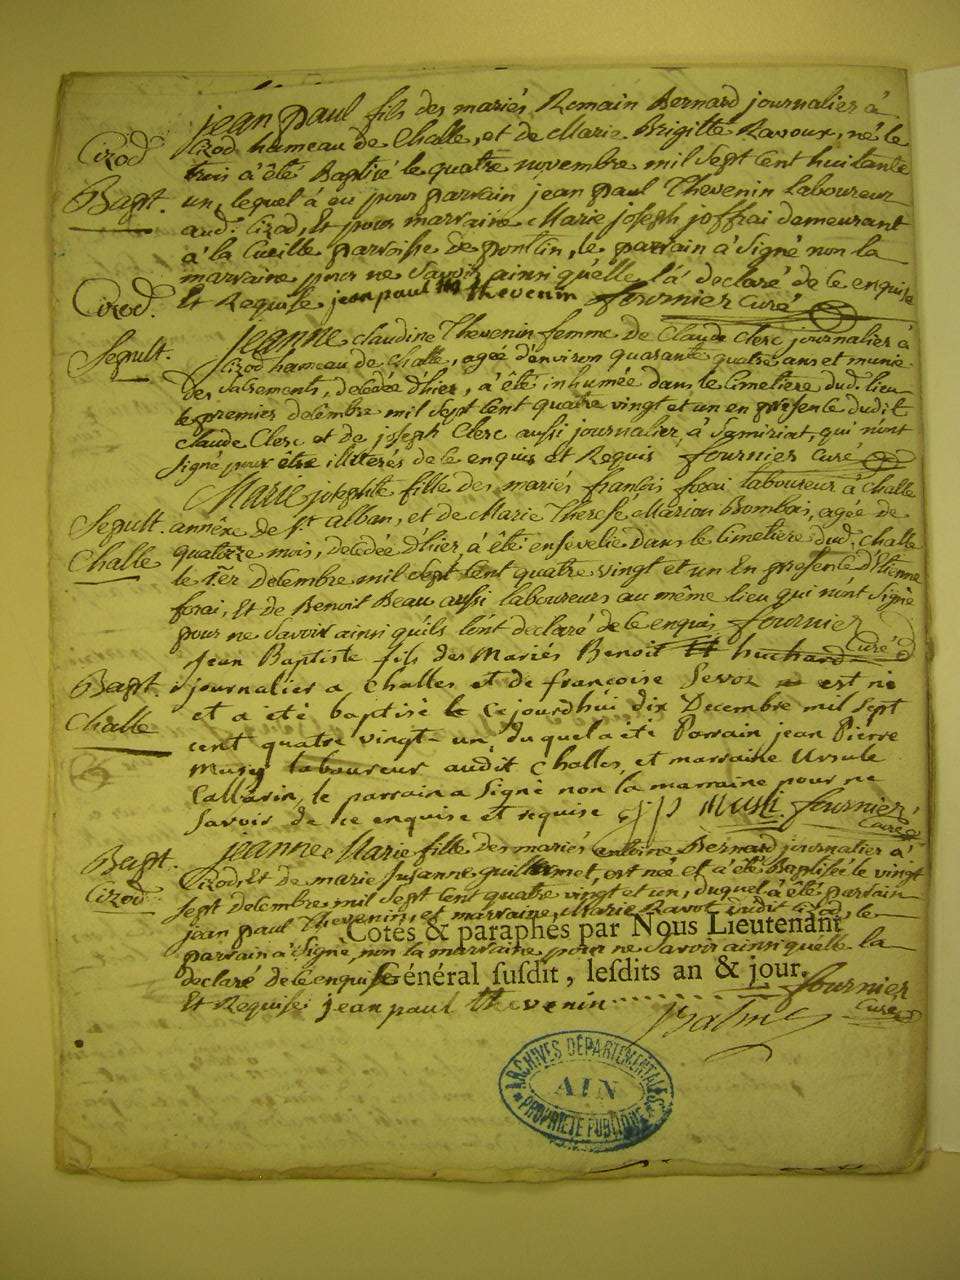 jean paul fils des mariés Romain Bernard journalier à
Cizod
Cizod hameau de Challe, et de Marie Brigitte Ravoux, né le
trois à été Baptisé le quatre novembre mil Sept Cent huitante
Bapt.
un, lequel à eu pour parrain jean paul Thevenin Laboureur
aud. Cizod, Et pour marraine Marie joseph joffrai demeurant
à la Cueille parroisse de poncin, le parrain à Signé non la
marraine pour ne Savoir ainsi qu'elle l'à declaré de ce enquise
Cizod.
Et Requise jean paul thevenin fournier Curé
Jeanne claudine Thevenin femme de Claude Clerc journalier à
Sepult.
Cizod hameau de Challe, agée d'environ quarante quatre ans et munie
des Sacrements, decedée d'hier, à été inhumée dans le Cimetiere dud. lieu
le premier decembre mil Sept Cent quatre vingt et un en presence dudit
Claude Clerc et de joseph Clerc aussi journalier, à Samiriat, qui n'ont
Signé pour être illiterés de ce enquis et Requis fournier Curé
Marie josephte fille des mariés françois forai laboureur à Challe
Sepult.
annêxe de St alban, et de Marie Therese Marion Bombois, agée de
Challe
quatorze mois, decedée d'hier, à été ensevelie dans le Cimetiere dud. Challe
le 1er decembre mil Sept Cent quatre vingt et un En presence d'Etienne
forai, Et de Benoit Beau aussi laboureurs au même lieu qui n'ont Signé
pour ne Savoir ainsi qu'ils l'ont declaré de ce enquis fournier
Curé
Jean Baptiste fils des Mariés Benoit huchard
Bapt.
journalier a Challes et de françoise est né
Challe
et a été baptisé le cejourdhui dix Decembre mil sept
cent quatre vingt un, duquel a été Parrain jean Pierre
Musy laboureur audit Challes, et marraine Ursule
Callarin, le parrain a Signé non la marraine pour ne
Savoir de ce enquise et requise jp Musi fournier
Curé
Bapt.
jeanne Marie fille des mariés antoine Bernard journalier à
Cizod
Cizod, Et de marie Susanne guillermet, est née et à été Baptisée le vingt
Sept decembre mil Sept Cent quatre vingt et un, duquel à été parrain
jean paul Thevenin, et marraine Marie Ravot dudit Cizod, le
Cotés & paraphés par Nous Lieutenant
parrain à Signé, non la marraine pour ne Savoir ainsi quelle la
declaré de ce enquise
Général susdit, lesdits an & jour.
Et Requise jean paul thevenin fournier
Curé
ARCHIVES DÉPARTEMENTALES
AIN
PROPRIÉTÉ PUBLIQUE